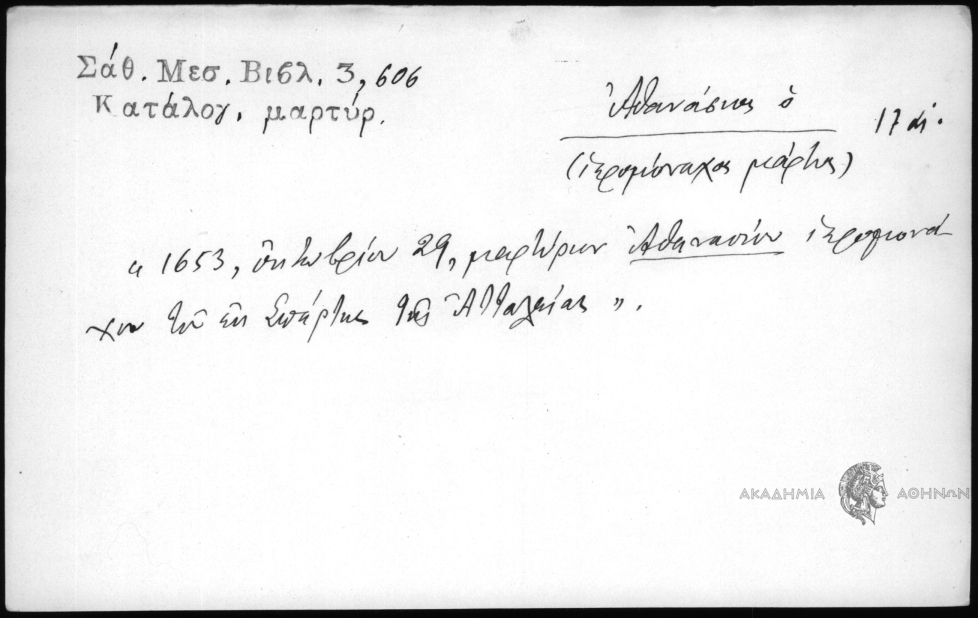 Σάθ. Μεσ. Βιβλ. 3, 606
Κατάλογ. μαρτύρ.
Ἀθανάσιος ὁ
17 αἰ.
(ἱερομόναχος μάρτυς)
« 1653, ὀκτωβρίου 29, μαρτύριον Ἀθανασίου ἱερομονά-
χου τοῦ ἐκ Σπάρτης τῆς Ἀτταλείας ».
ΑΚΑΔΗΜΙΑ ΑΘΗΝΩΝ